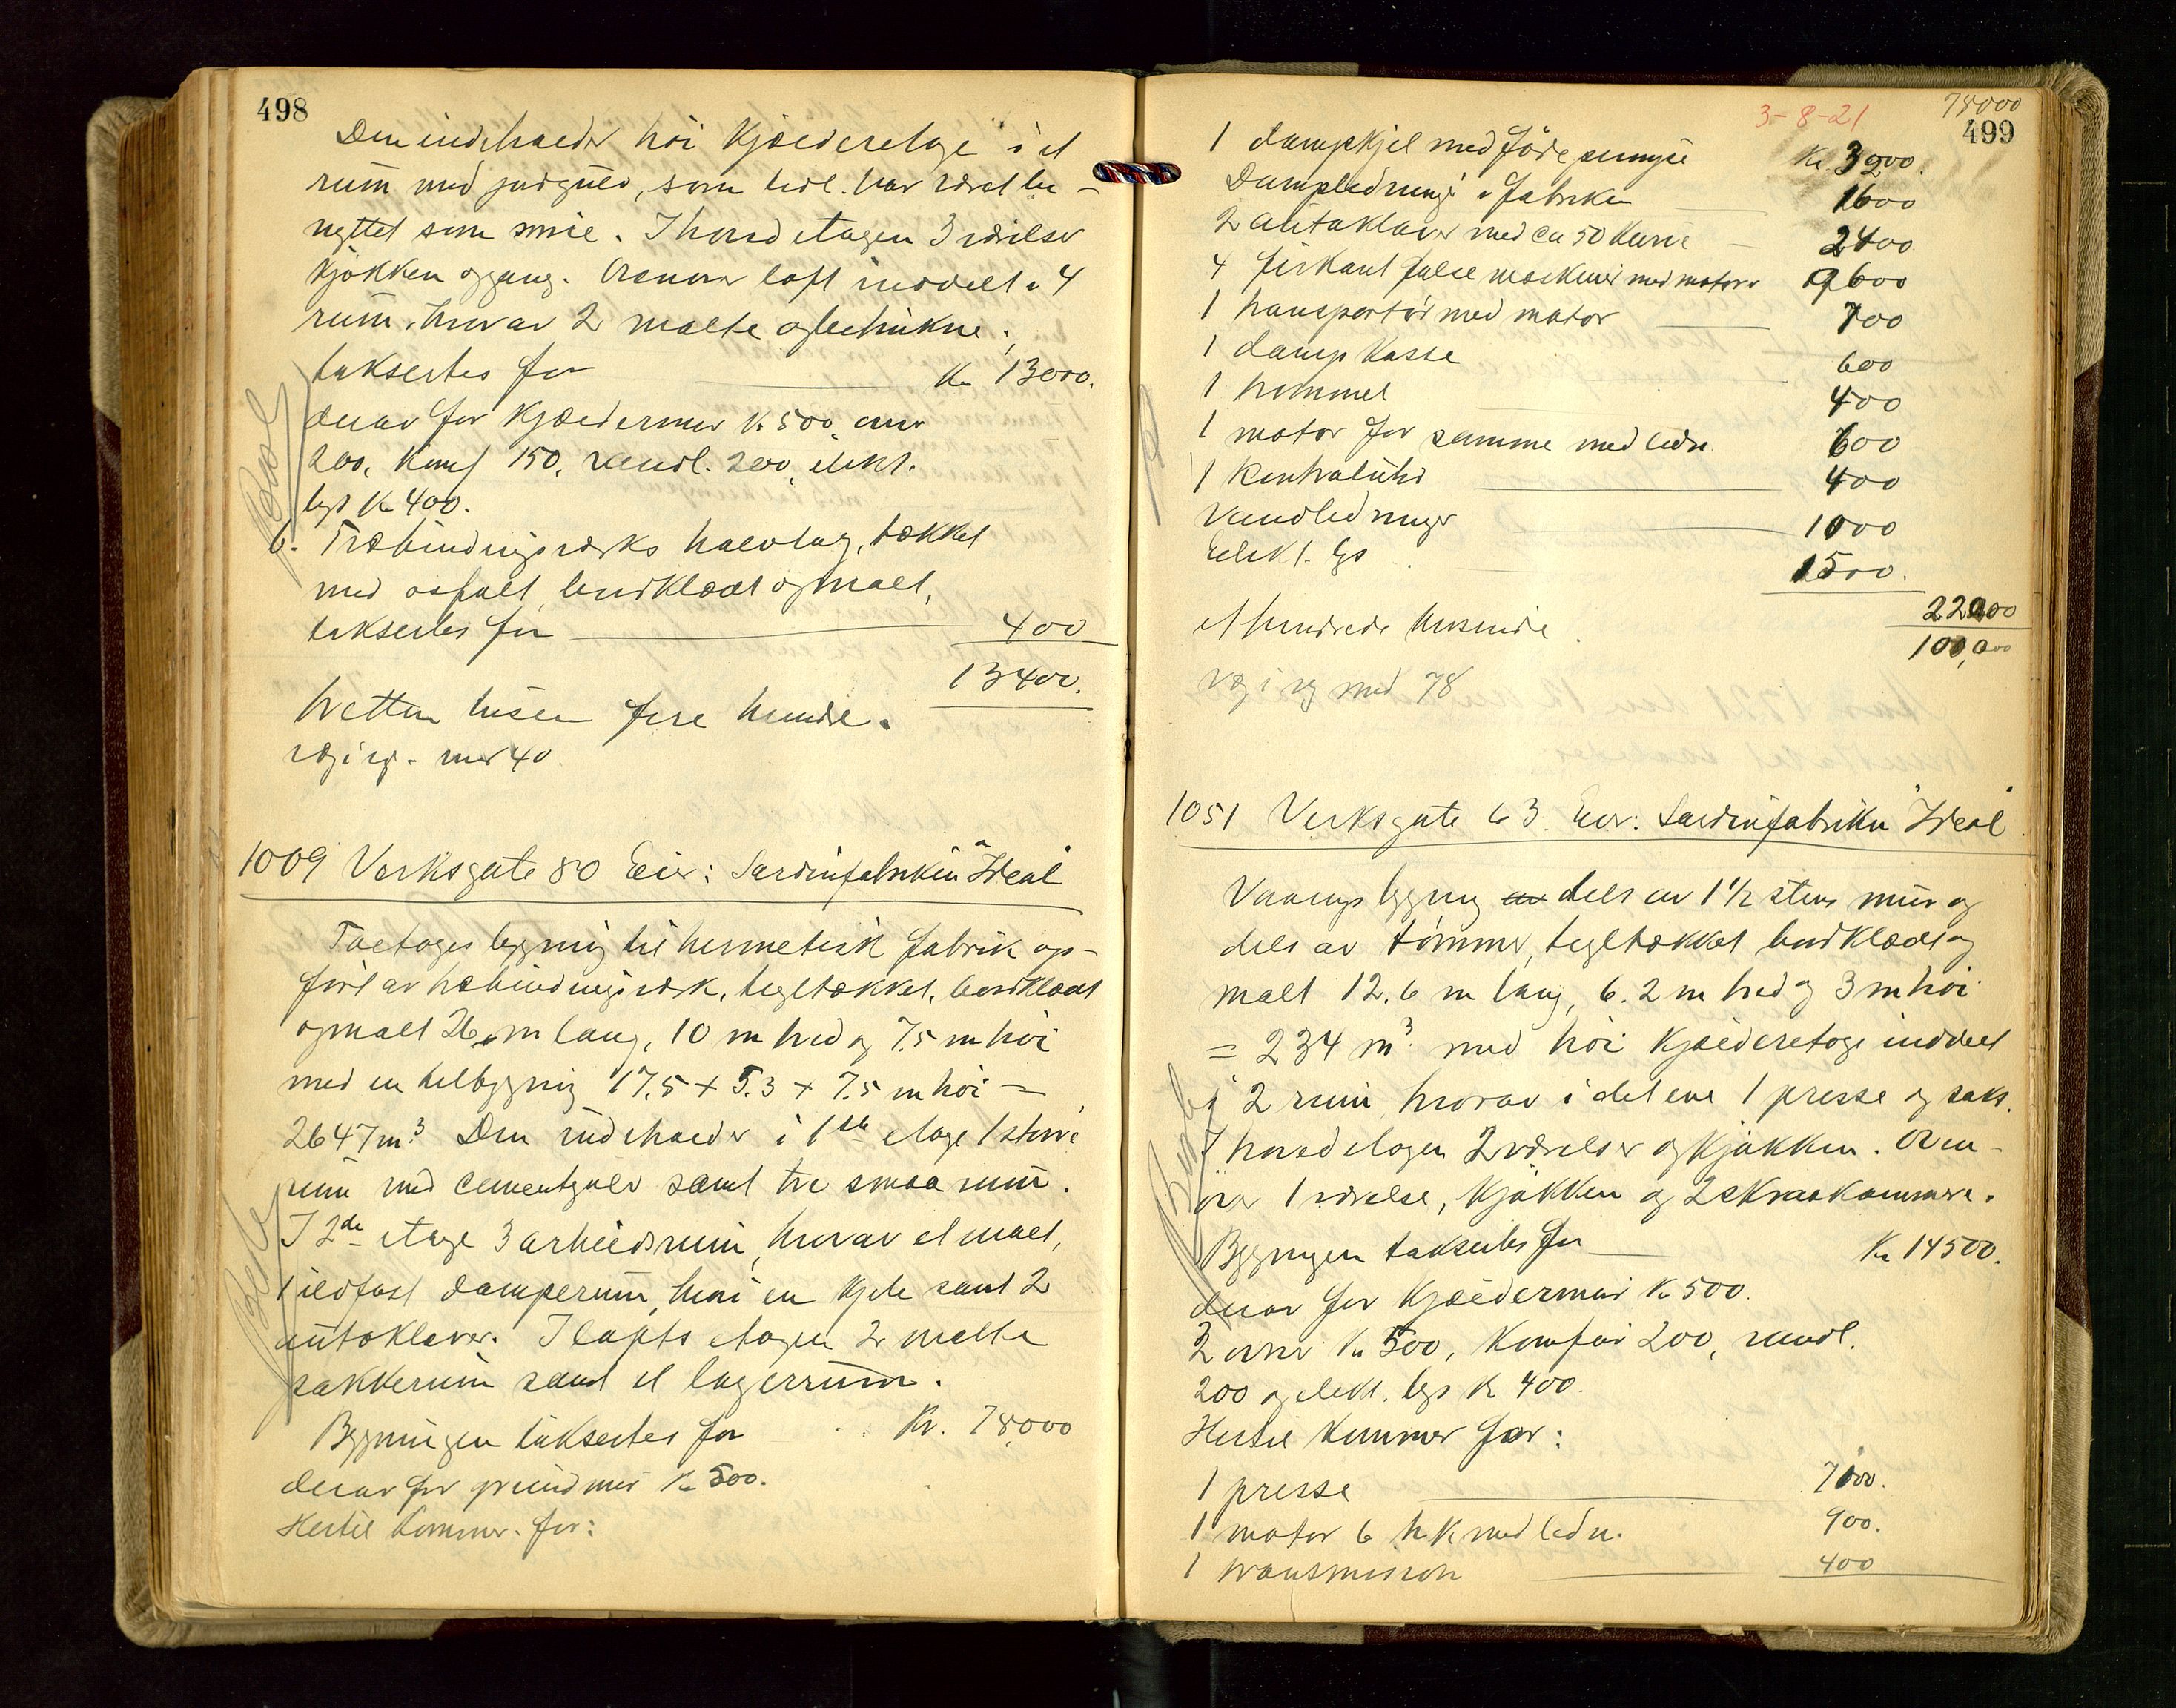 498
Den indeholder höi kjælderetage i et
rum med jordgulv, som tidl. har været be-
nyttet som smie. I hovedetagen 3 værelser
kjökken og gang. Ovenover loft inddelt i 4
rum, hvorav 2 malte og betrukne.
taksertes for Kr 13000.
derav for kjældermur Kr 500, ovner
200, komf 150, vandl. 200, elekt.
lys Kr 400.
b. Træbindingsverks halvtag, tækket
med asfalt, bordklædt og malt,
taksertes for 400
13400.
Tretten tusen fire hundre.
veg i veg med 40
1009 Verksgate 80 Eier: Sardinfabriken "Ideal"
Toetages bygning til hermetisk fabrik op-
fört av træbindingsverk, tegltækket, bordklædt
og malt 26,  m lang, 10 m bred og 7.5 m höi
med en tilbygning 17.5 + 5.3 + 7.5 m höi =
2647 m³. Den indeholder i 1ste etage 1 större
rum med cementgulv samt tre smaa rum.
I 2de etage 3 arbeidsrum, hvorav et malt,
1 ildfast damperum, hvori en kjele samt 2
autoklaver. I loftsetagen 2 malte
pakkerum samt et lagerrum.
Bygningen taksertes for Kr. 78,000
derav for grundmur Kr 500.
Hertil kommer for:
75000
3-8-21
499
1 dampkjel med födepumpe Kr. 3200.
Dampledning i fabriken 1600
2 autoklaver med ca 50 kurve 2400
4 firkant false maskiner med motor 9600
1 transportör med motor 700
1 dampkasse 600
1 trommel 400
1 motor for samme med ledn. 600
1 kentralvifte 400
Vandledninger 1000
Elekt. lys 1500.
22000
Et hundrede tusinde. 100,000
veg i veg med 78
1051 Verksgate 63. Eier: Sardinfabriken "Ideal"
Vaaningsbygning av dels av 1½ stens mur og
dels av tömmer, tegltækket bordklædt og
malt 12.6 m lang, 6.2 m bred og 3 m höi
= 234 m³. med höi kjælderetage inddelt
i 2 rum hvorav i det ene 1 presse og saks.
I hovedetagen 2 værelser og kjökken. Oven-
over 1 værelse, kjökken og 2 skraakammere.
Bygningen taksertes for Kr 14500.
derav for kjældermur Kr 500.
3 ovner Kr 500, komfur 200, vandl.
200 og elekt. lys Kr 400.
Hertil kommer for:
1 presse 7000.
1 motor 6 h.k med ledn. 900.
1 transmission 400